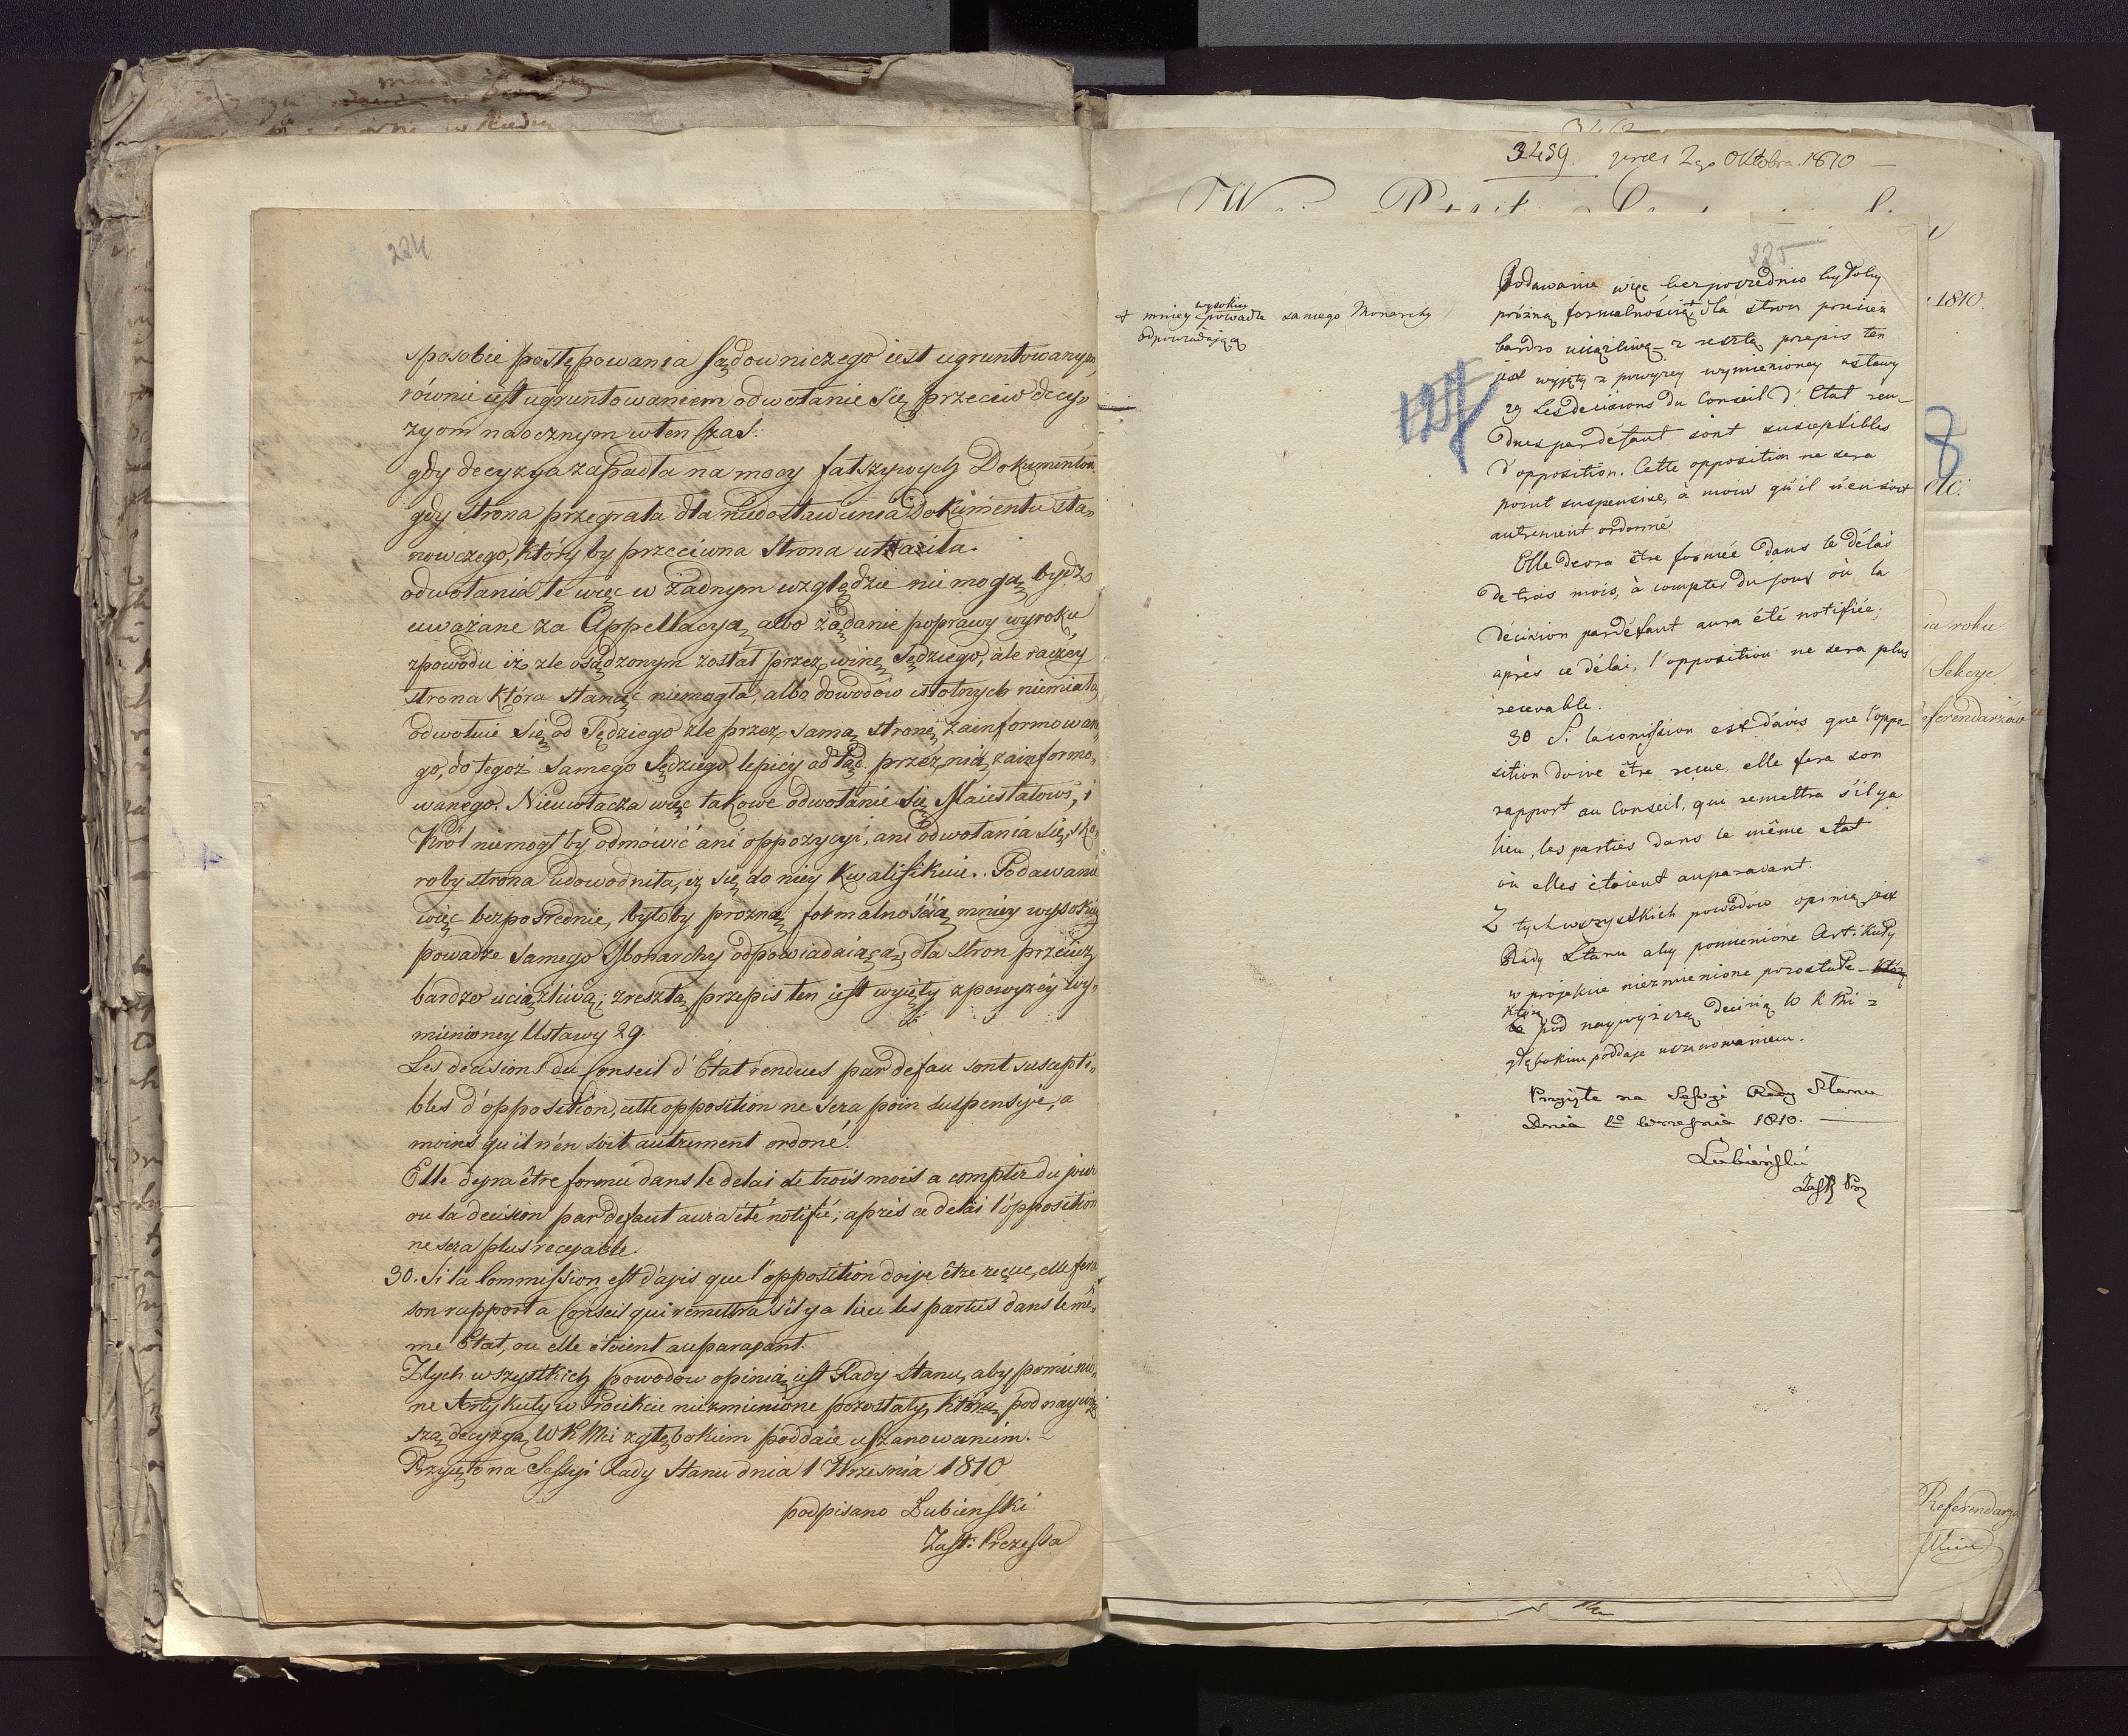 224
sposobie postępowania sądowniczego iest ugruntowanym,
równie iest ugruntowaniem odwołanie się przeciw decy„
zyom naocznym wten szas:
gdy decyzya zapadła na mocy fałszywych Dokumentów
gdy strona przegrała dla niedostawienia Dokumentu sta„
nowczego, który by przeciwna strona utraiła.
odwołania te więc w żadnym względzie nie mogą bydź
uważane za Appellacyą, albo żądanie poprawy wyroku
zpowodu iż źle osądzonym został przez winę Sędziego, ale raczey
strona która stanąć niemogła, albo dowodów istotnych niemiała,
odwołuie się od Sędziego źle przez samą stronę zainformowane„
go, do tegoż samego Sędziego lepiéy odtąd przez nią zainformo„
wanego. Nieuwłacza więc takowe odwołanie się Maiestatowi, i
Król niemogł by odmówić ani oppozycyi, ani odwołania się, sko„
roby strona udowodniła, iż się do niey kwalifikuie. Podawanie
więc bezpośrednie, byłoby prozną formalnością mniey wysokiey
powadze samego Monarchy odpowiadaiącą, dla stron przeciez
bardzo uciążliwą; zresztą przepis ten iest wyięty zpowyzéy wy„
mienioney Ustawy 29.
Les decisions du Conseil d'État rendues par defau sont suscepti„
bles d'opposition, cette opposition ne sera poin suspensive, a
moins qu'il n'en soit autrement ordoné.
Elle devra être formée dans le delai de trois mois a compter du jour
ou la decision par defaut aura été notifié; aprés ce delai l'opposition
ne sera plus recevable.
30. Si la Commission est d'avis que l'opposition doive être reçue, elle fera
son rapport a Conseil qui remettra s'il y a lieu les parties dans le mê„
me Etat, ou elle étoient auparavant.
Ztych wszystkich powodów opinią iest Rady Stanu, aby pomienio„
ne Artykuły w Proiekcie niezmienione pozostały, którą pod naywyż
szą decyzyą WKMci zgłębokiem poddaie uszanowaniem.
Przyięto na Sessyi Rady Stanu dnia 1 Września 1810
podpisano Łubienski
Zast: Prezessa
3459. 2go Oktobra 1810 —
225
wysokiey
+ mniey powadze samego Monarchy
odpowiadającą
Podawanie więc bezpośrednio byłoby
próżną formalnością, dla stron przecież
bardzo uciążliwą — z resztą przepis ten
jest wyjęty z powyzey wymienioney ustawy
127
29 Les decisions du Conseil d'Etat ren„
dues par défaut sont susceptibles
d'opposition. Cette opposition ne sera
point suspensive, à moins qu'il n'en soit
autrement ordonné
Elle devra être formée dans le délai
de trois mois, à compter du jour où la
décision par défaut aura été notifiée;
après ce délai, l'opposition ne sera plus
recevable.
30 Si la comission est d'avis que l'oppo„
sition doive être reçue, elle fera son
rapport au Conseil, qui remettra s'il y a
lieu, les parties dans le même etat
où elles étoient auparavant.
Z tych wszystkich powodów opinią jest
Rady Stanu aby pomienione Artikuły
w projekcie niezmienione pozostałe którą
którą
pod naywyższą decizią W K Mci z
głębokiem poddaje uszanowaniem.
Przyięte na Sessyi Rady Stanu
Dnia 1o Wrzesnia 1810. —
Łubieński
Zast Prez
1810
8
ia roku
Sekcye
eferendarzów
Referendarza